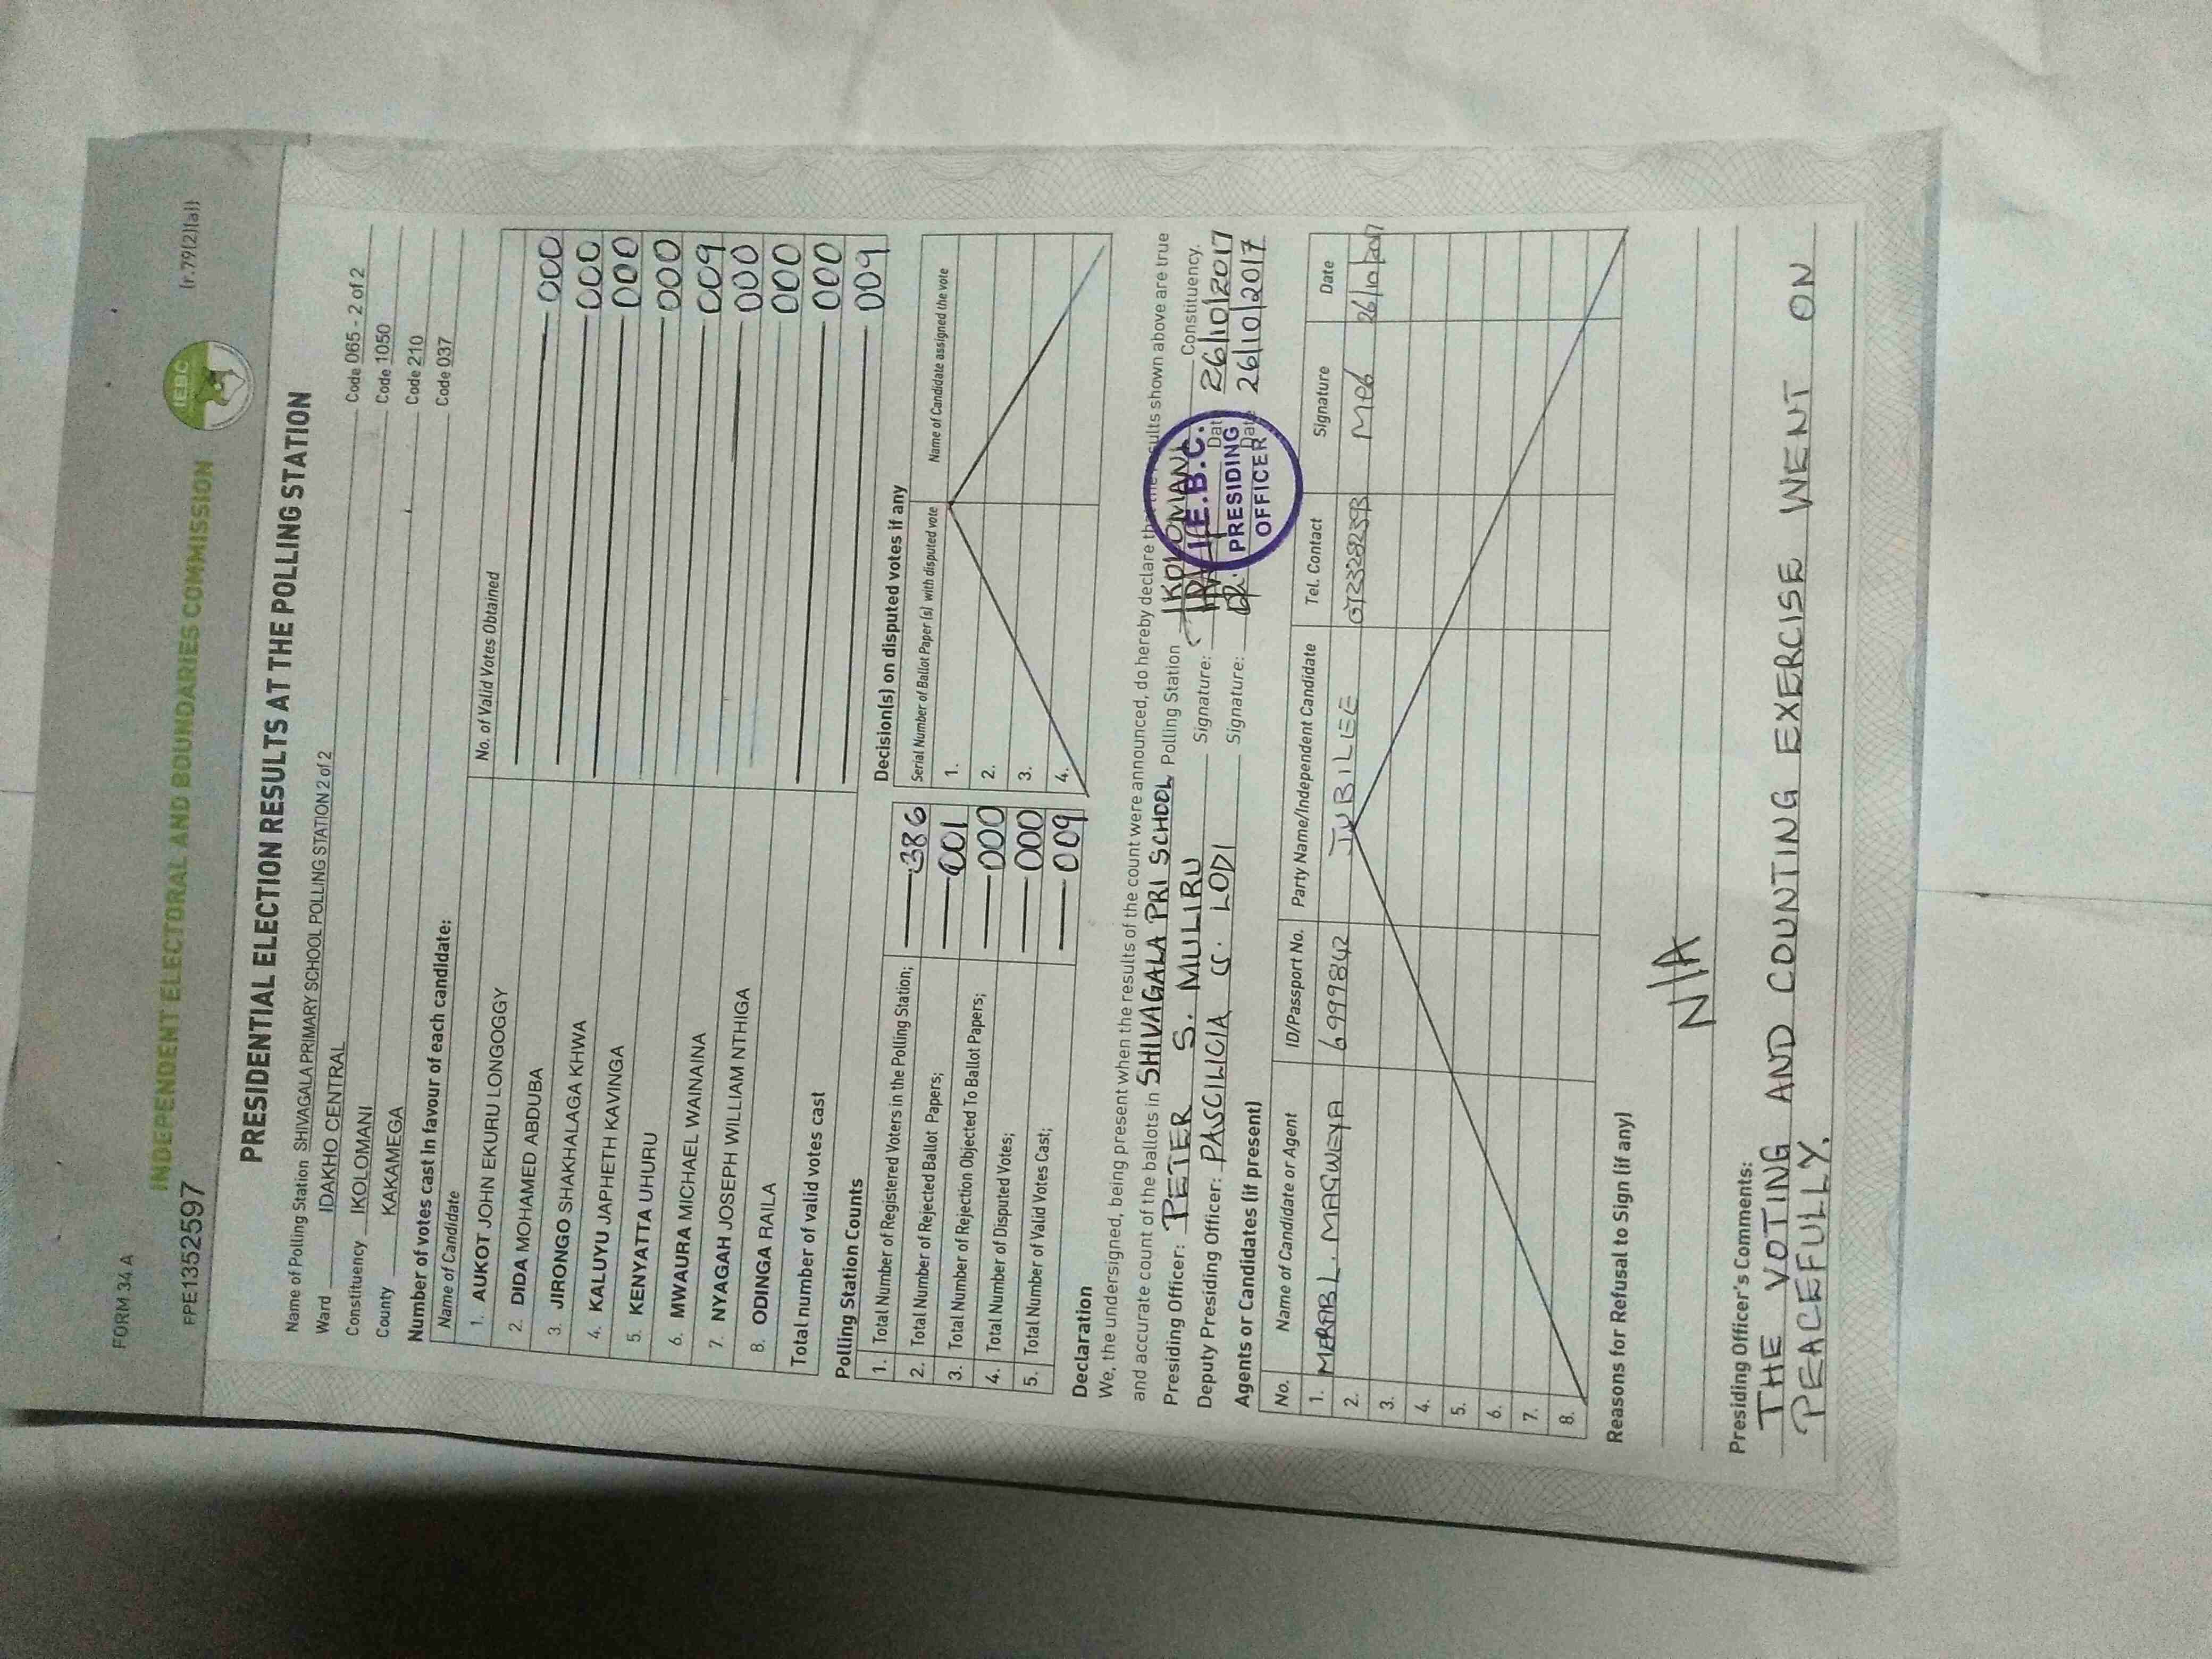 FORM 34 A
(r.79(2)(a))
PPE1352597
INDEPENDENT ELECTORAL AND BOUNDARIES COMMISSION
IEBC
PRESIDENTIAL ELECTION RESULTS AT THE POLLING STATION
Name of Polling Station SHIVAGALA PRIMARY SCHOOL POLLING STATION 2 of 2 Code 065 - 2 of 2
Ward IDAKHO CENTRAL Code 1050
Constituency IKOLOMANI Code 210
County KAKAMEGA Code 037
Number of votes cast in favour of each candidate:
Name of Candidate No. of Valid Votes Obtained
1. AUKOT JOHN EKURU LONGOGGY 000
2. DIDA MOHAMED ABDUBA 000
3. JIRONGO SHAKHALAGA KHWA 000
4. KALUYU JAPHETH KAVINGA 000
5. KENYATTA UHURU 009
6. MWAURA MICHAEL WAINAINA 000
7. NYAGAH JOSEPH WILLIAM NTHIGA 000
8. ODINGA RAILA 000
Total number of valid votes cast 009
Polling Station Counts
1. Total Number of Registered Voters in the Polling Station; 386
2. Total Number of Rejected Ballot Papers; 001
3. Total Number of Rejection Objected To Ballot Papers; 000
4. Total Number of Disputed Votes; 000
5. Total Number of Valid Votes Cast; 009
Decision(s) on disputed votes if any
Serial Number of Ballot Paper (s) with disputed vote Name of Candidate assigned the vote
1.
2.
3.
4.
Declaration
We, the undersigned, being present when the results of the count were announced, do hereby declare that the results shown above are true
and accurate count of the ballots in SHIVAGALA PRI SCHOOL Polling Station IKOLOMANI Constituency.
Presiding Officer: PETER S. MULIRU Signature: Date 26/10/2017
Deputy Presiding Officer: PASCILICIA C. LODI Signature: Date 26/10/2017
I.E.B.C.
PRESIDING
OFFICER
Agents or Candidates (if present)
No. Name of Candidate or Agent ID/Passport No. Party Name/Independent Candidate Tel. Contact Signature Date
1. MERAB L. MAGWEYA 6999842 JUBILEE 26/10/2017
2.
3.
4.
5.
6.
7.
8.
Reasons for Refusal to Sign (if any)
N/A
Presiding Officer's Comments:
THE VOTING AND COUNTING EXERCISE WENT ON
PEACEFULLY.